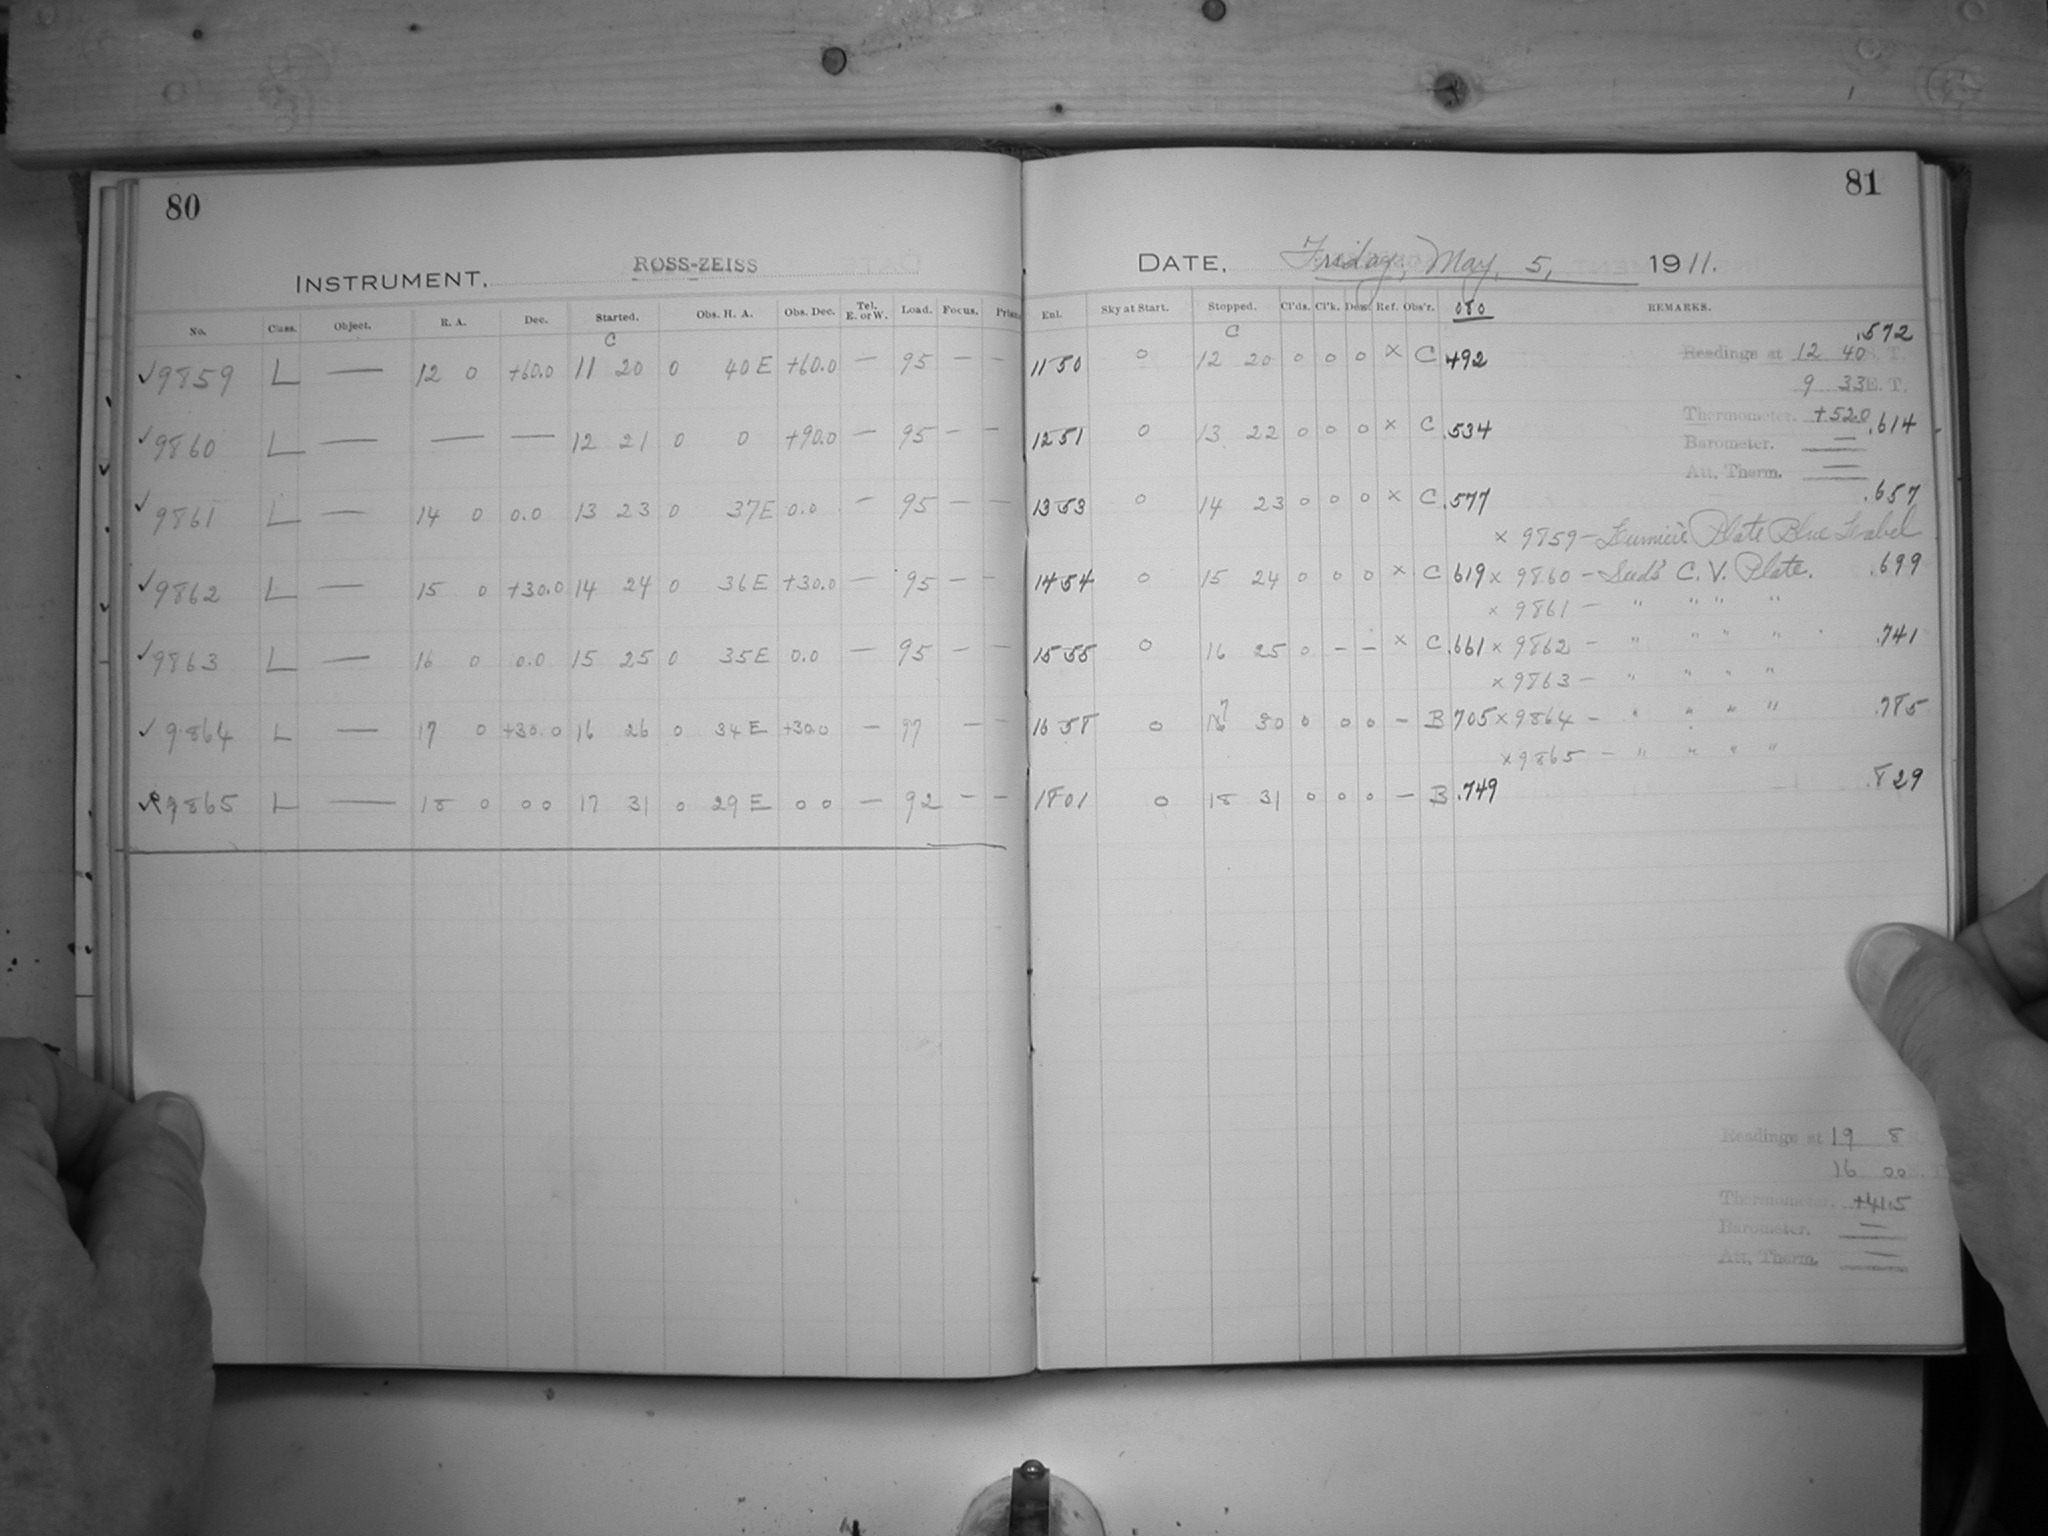 80
INSTRUMENT, ROSS-ZEISS
No. Class. Object. R. A. Dec. Started. Obs. H. A. Obs. Dec. Tel. E. or W. Load. Focus.
C
✓9859 L — 12 0 +60.0 11 20 0 40 E +60.0 — 95 — —
✓9860 L — — — 12 21 0 0 +90.0 — 95 — —
✓9861 L — 14 0 0.0 13 23 0 37E 0.0 — 95 — —
✓9862 L — 15 0 +30.0 14 24 0 36 E +30.0 — 95 — —
✓9863 L — 16 0 0.0 15 25 0 35E 0.0 — 95 — —
✓9864 L — 17 0 +30.0 16 26 0 34 E +30.0 — 97 — —
9865 L — 18 0 0 0 17 31 0 29 E 0 0 — 92 — —
81
DATE, Friday, May, 5, 1911.
Enl. Sky at Start. Stopped. Cl'ds. Cl'k. Dew. Ref. Obs'r. 080 REMARKS.
C
.572
11 50 0 12 20 0 0 0 × C 492 Readings at 12 40 S. T.
9 33 E. T.
Thermometer. +52.0
12 51 0 13 22 0 0 0 × C .534 .614
Barometer. —
Att. Therm. —
13 53 0 14 23 0 0 0 × C .577 .657
× 9859 — Plate Blue Label
14 54 0 15 24 0 0 0 × C 619 × 9860 — Seeds C. V. Plate. .699
× 9861 — " " " "
15 55 0 16 25 0 – – × C .661 × 9862 — " " " " .741
× 9863 — " " " "
16 58 0 17 30 0 0 0 – B 705 × 9864 — " " " " .785
× 9865 — " " " "
18 01 0 18 31 0 0 0 — B .749 .829
Readings at 19 8
16 00 E. T.
Thermometer. +41.5
Barometer. —
Att. Therm. —